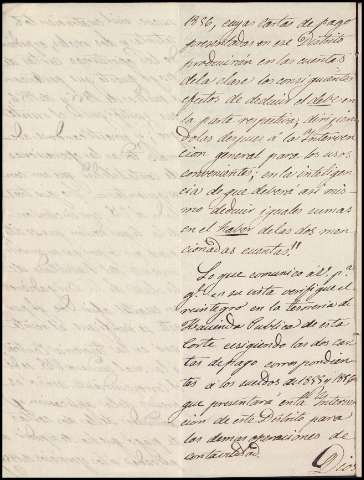 1856, cuyas cartas de pago
presentadas en ese Distrito
producirán en las cuentas
de la clase los consiguientes
efectos de deducir el debe en
la parte respectiva; dirigien
dolas despues á la Interven
cion general para los usos
convenientes; en la inteligen
cia de que deberá asi mis
mo deducir iguales sumas
en el haber de las dos men
cionadas cuentas."
Lo que comunico á V. p.ª
q.e en su vista verifique el
reintegro en la tesoreria de
Hacienda Publica de esta
Corte exigiendo las dos car
tas de pago correspondien
tes a los sueldos de 1855 y 1856
que presentará en la Interven
cion de este Distrito para
las demas operaciones de
contavilidad.
Dios